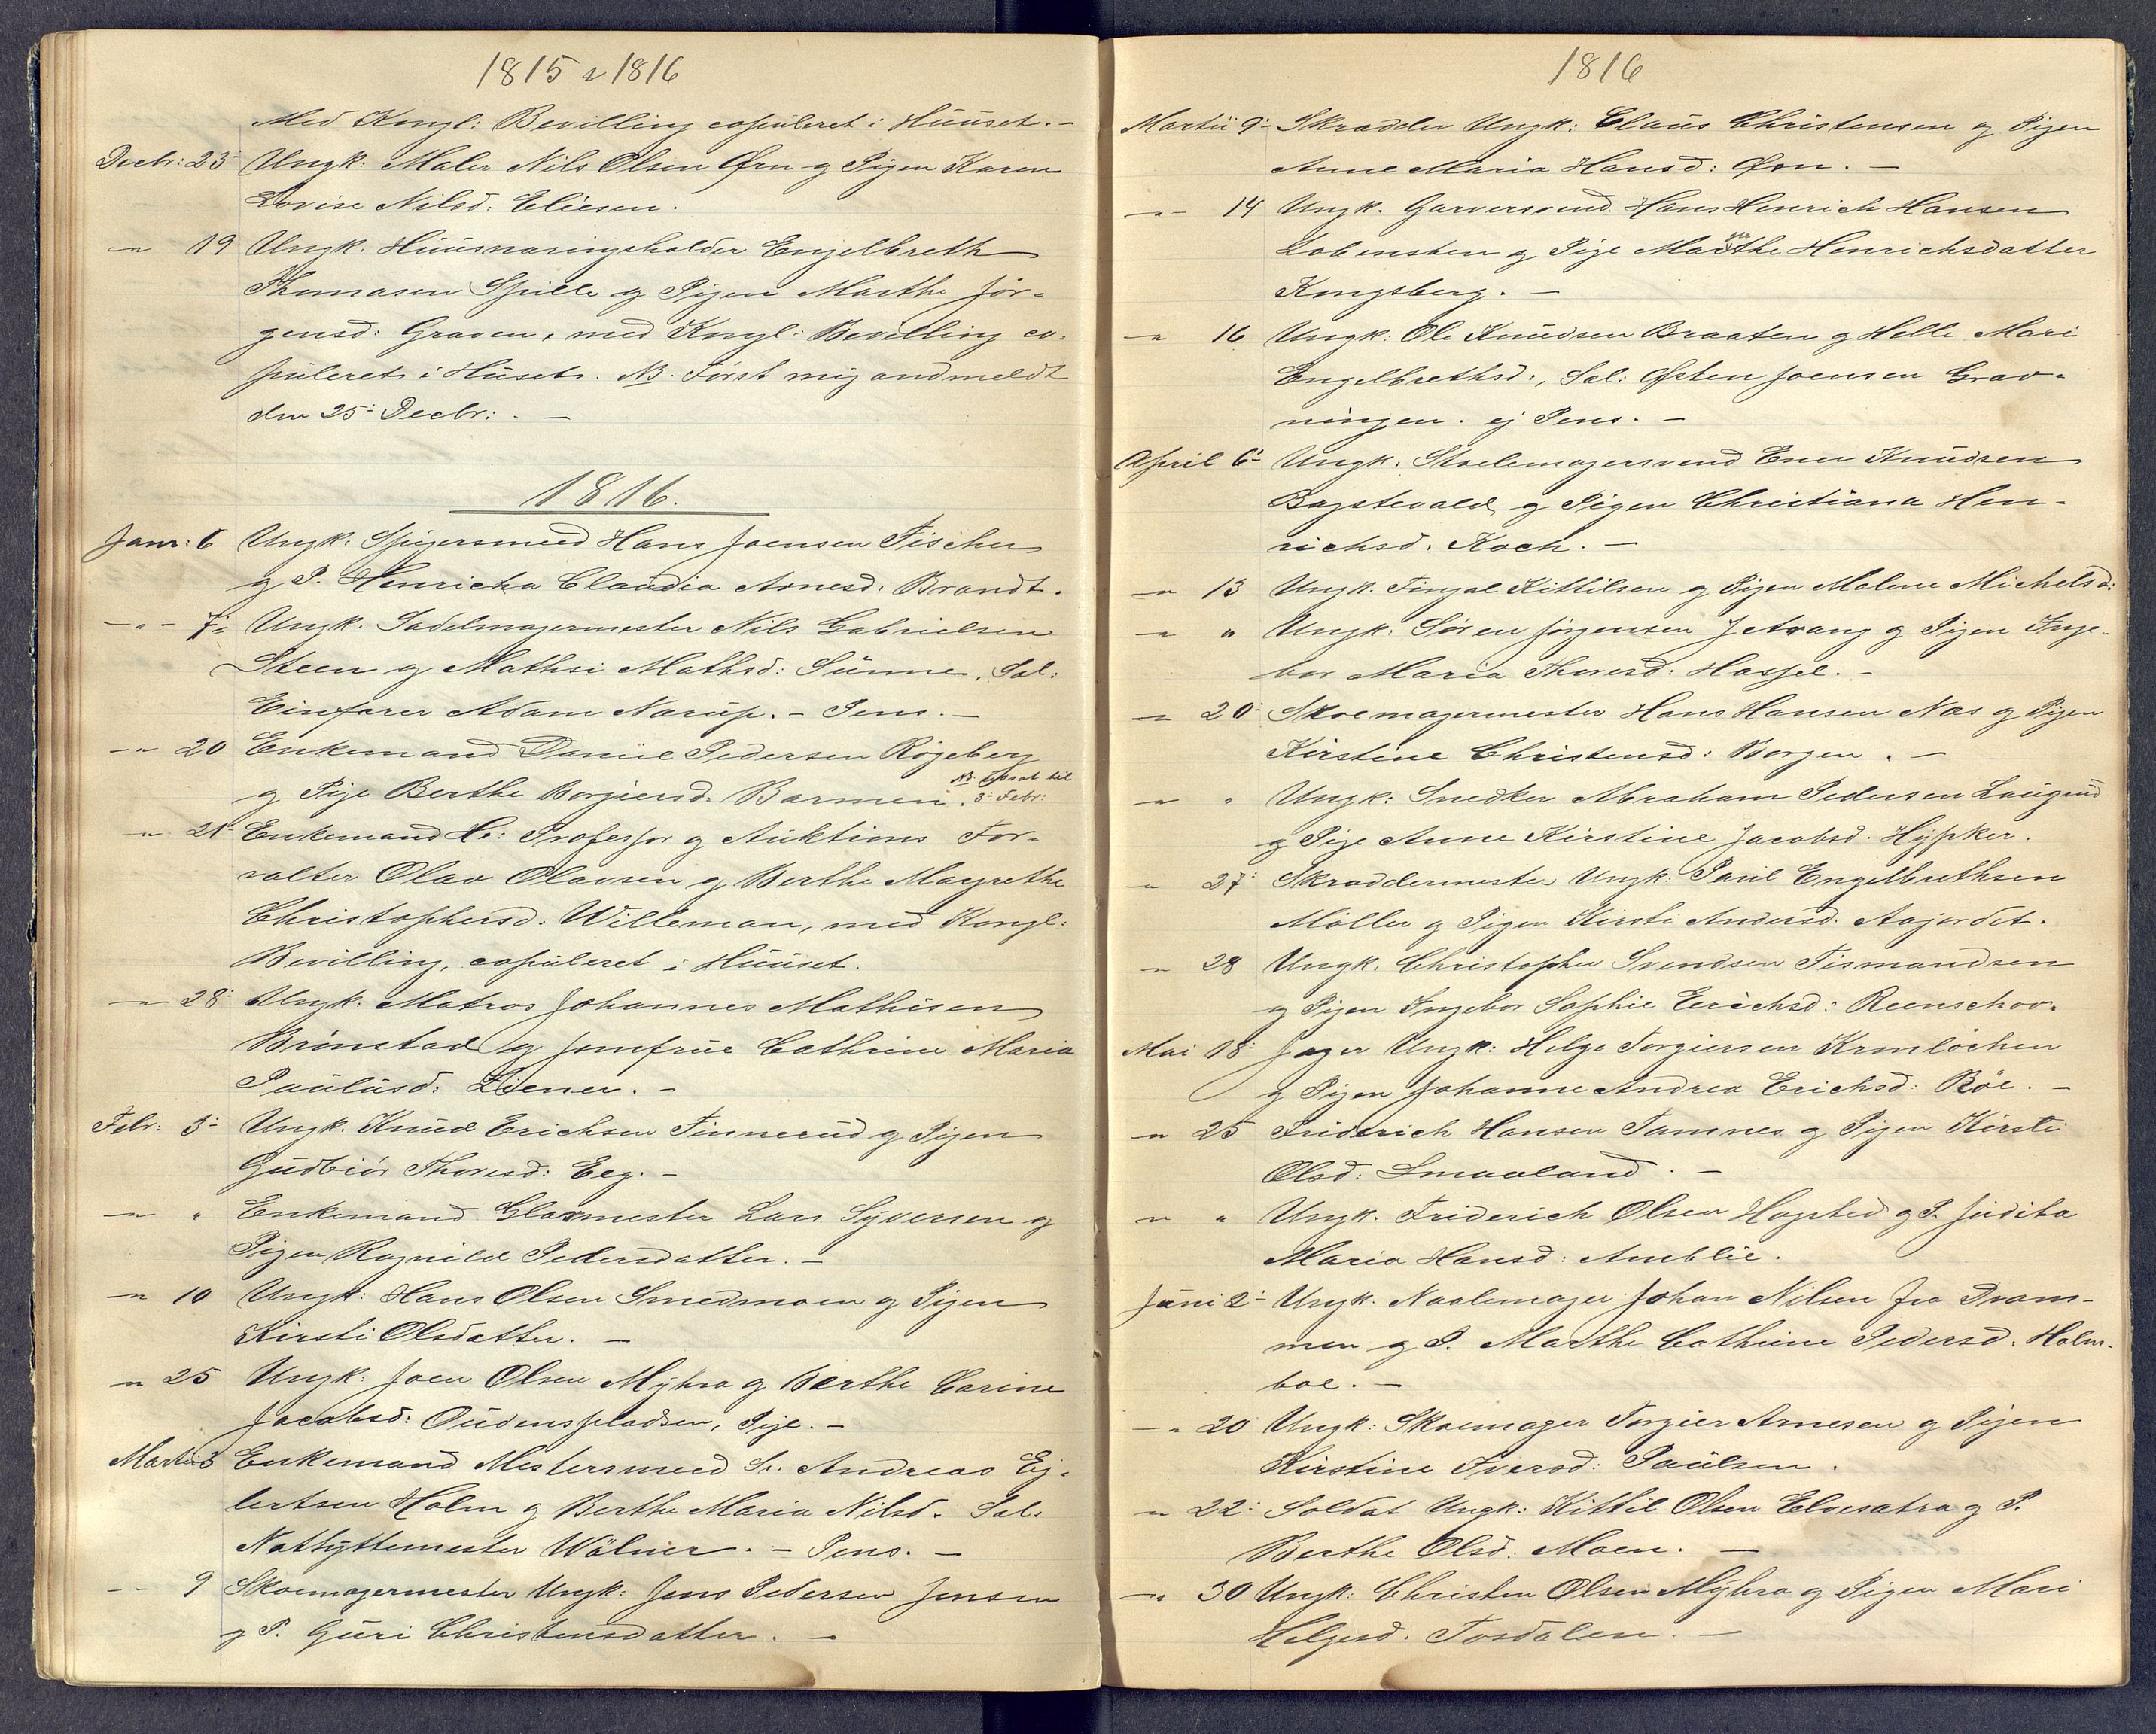 1815 & 1816
Med Kongl: Bevilling copuleret i Huuset. -
Decbr: 23 Ungk: Maler Nils Olsen Ørn og Pigen Karen
Lovise Nilsd. Eliesen.
-"- 19 Ungk. Huusnæringsholder Engelbreth
Thomasen Spille og Pigen Marthe Jör-
gensd: Graven, med Kongl: Bevilling co-
puleret i Huset. NB. Först mig andmeldt
den 25: Decbr: . -
1816.
Janr: 6 Ungk: Spigersmed Hans Joensen Fischer
og P. Henricha Claudia Arnesd. Brandt.
-"- 7: Ungk. Sadelmagermester Nils Gabrielsen
Steen og Mathsi Mathsd: Sünne, Sal:
Einfarer Adam Narup. - Pens. -
-"- 20 Enkemand Daniel Pedersen Rögeberg
og Pige Berthe Borgiersd. Barmen. NB. Opsat til 3: Febr:
-"- 21: Enkemand Hr: Professor og Auktions For-
valter Olav Olavsen og Berthe Magrethe
Christophersd: Willeman, med Kongl:
Bevilling, copuleret i Huuset.
-"- 28: Ungk. Matros Johannes Mathisen
Brünstad og Jomfrue Cathrine Maria
Paulusd: Ziener. -
Febr: 3: Ungk. Knud Erichsen Finnerud og Pigen
Gudbiör Thoresd: Eeg. -
-"- " Enkemand Glasmester Lars Syversen og
Pigen Ragnild Pedersdatter. -
-"- 10 Ungk: Hans Olsen Smedmoen og Pigen
Kirsti Olsdatter. -
-"- 25 Ungk. Joen Olsen Myhra og Berthe Carine
Jacobsd: Oudenspladsen, Pige. -
Martii 3 Enkemand Mestersmed Sr. Andreas Ej-
lertsen Holm og Berthe Maria Nilsd. Sal.
Wölner. - Pens. -
-"- 9 Skoemagermester Ungk: Jens Pedersen Jensen
og P. Guri Christensdatter. -
1816
Martii 9: Skradder Ungk: Claus Christensen og Pigen
Anne Maria Hansd: Ørn. -
-"- 14 Ungk. Garversvend Hans Henrich Hansen
Lobensten og Pige Marthe Henrichsdatter
Kongsberg. -
-"- 16 Ungk: Ole Knudsen Braaten og Helle Mari
Engelbrethsd:, Sal: Østen Joensen Grav-
ningen. ej Pens. -
April 6: Ungk. Stoelemagersvend Ener Knudsen
Bagstevold og Pigen Christiana Hen-
richsd. Koch. -
-"- 13 Ungk. Tingal Kittilsen og Pigen Malene Michelsd:
-"- " Ungk: Sören Jörgensen Jetvang og Pigen Inge-
bor Maria Thoresd: Hassel. -
-"- 20: Skoemagermester Hans Hansen Næs og Pigen
Kirstine Christensd: Borgen. -
-"- " Ungk: Snedker Abraham Pedersen Laugerud
og Pige Anne Kirstine Jacobsd. Hypker.
-"- 27: Skraddermester Ungk: Paul Engelbrethsen
Möller og Pigen Kirsti Andersd. Aajordet.
-"- 28 Ungk: Christopher Svendsen Tismandsen
og Pigen Ingebor Sophie Erichsd: Reenschov.
Mai 18: Jager Ungk: Helge Torgiersen Kronlöchen
og Pigen Johanne Andrea Erichsd: Röe. -
-"- 25 Friderich Hansen Tamnes og Pigen Kirsti
Olsd: Smaaland. -
-"- " Ungk. Friderich Olsen Hagsted og P. Juditha
Maria Hansd: Amblie.
Juni 2: Ungk. Naalemager Johan Nilsen fra Dram-
men og P. Marthe Cathrine Pedersd. Holm-
boe. -
-"- 20 Ungk: Skoemager Torgier Arnesen og Pigen
Kirstine Iversd: Paulsen.
-"- 22: Soldat Ungk: Kittil Olsen Elvesatra og P.
Berthe Olsd: Moen. -
-"- 30 Ungk: Christen Olsen Myhra og Pigen Mari
Helgesd. Tosdalen. -